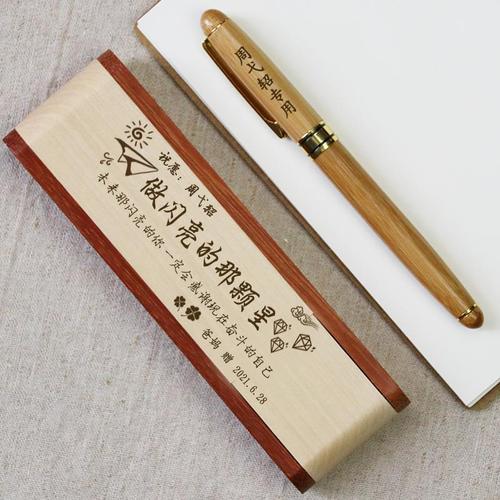 祝愿：周弋轺
做闪亮的那颗星
未来那闪亮的你一定会感谢现在奋斗的自己
爸妈 赠 2021.6.28
周弋轺专用